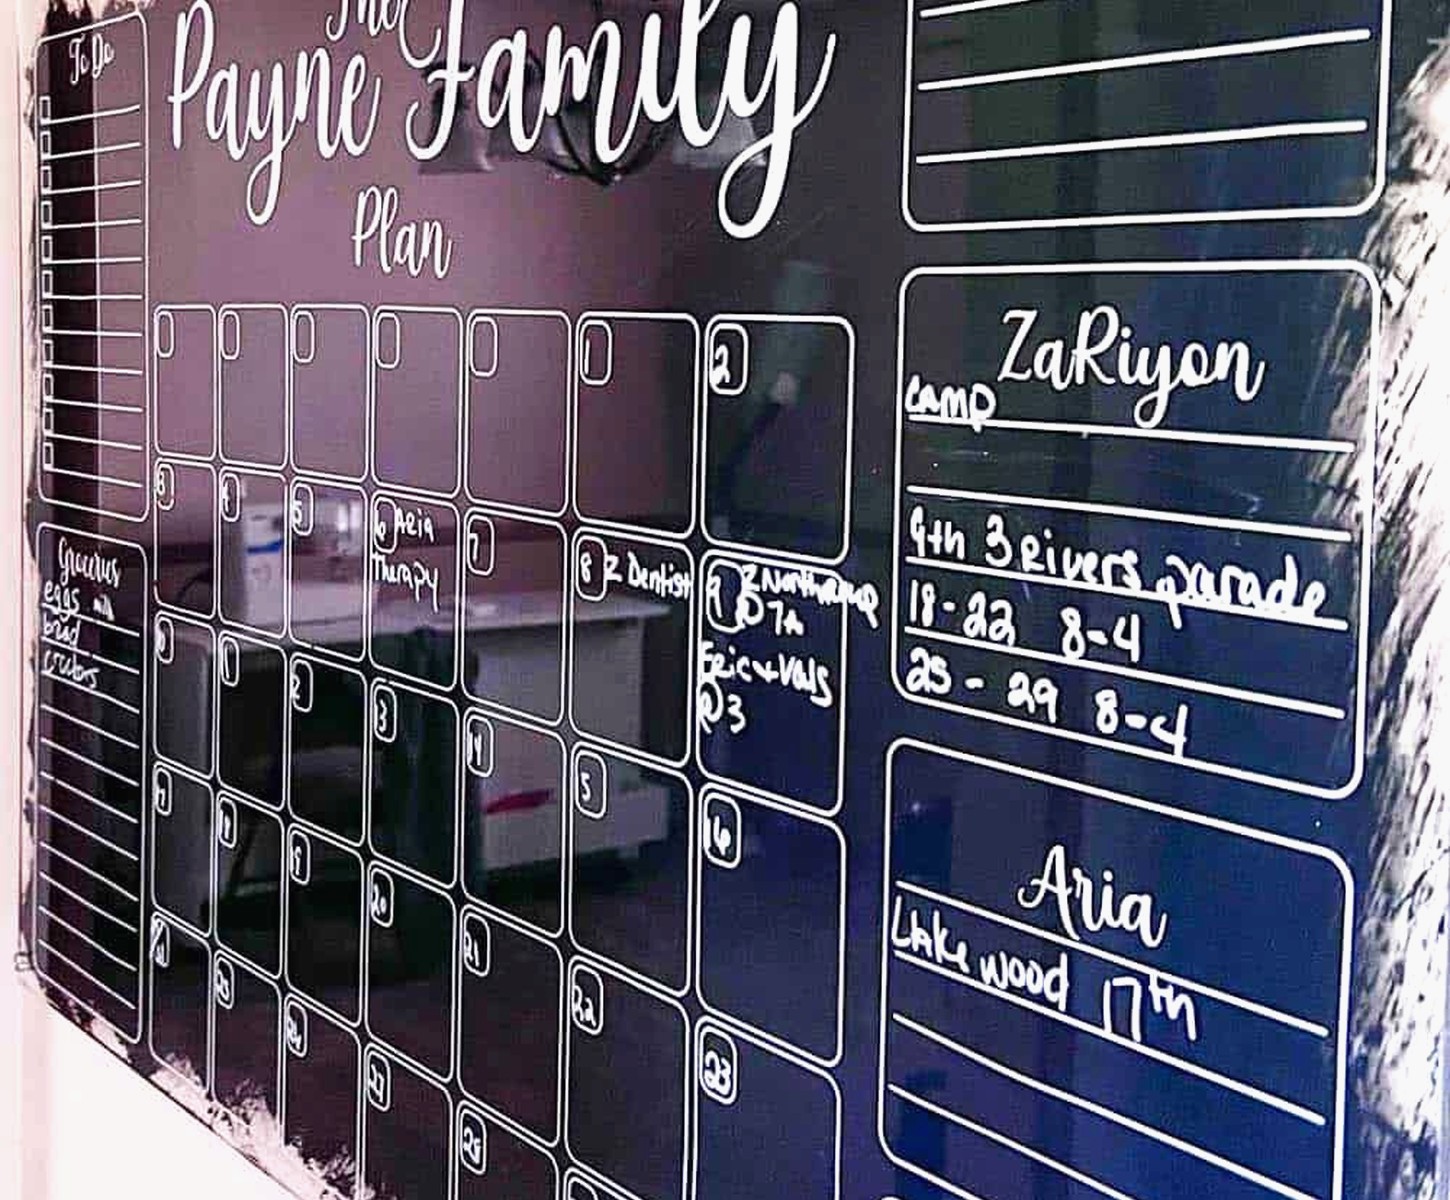 To Do
The
Payne Family
Plan
1
2
3
4
5
6 Aria
Therapy
7
8 Z Dentist
9
@ 7A
Eric & Vals
@ 3
1
2
3
14
5
16
19
20
21
22
23
25
26
27
28
Groceries
eggs milk
ZaRiyon
camp
9th 3 Rivers parade
18-22 8-4
25-29 8-4
Aria
Lakewood 17th